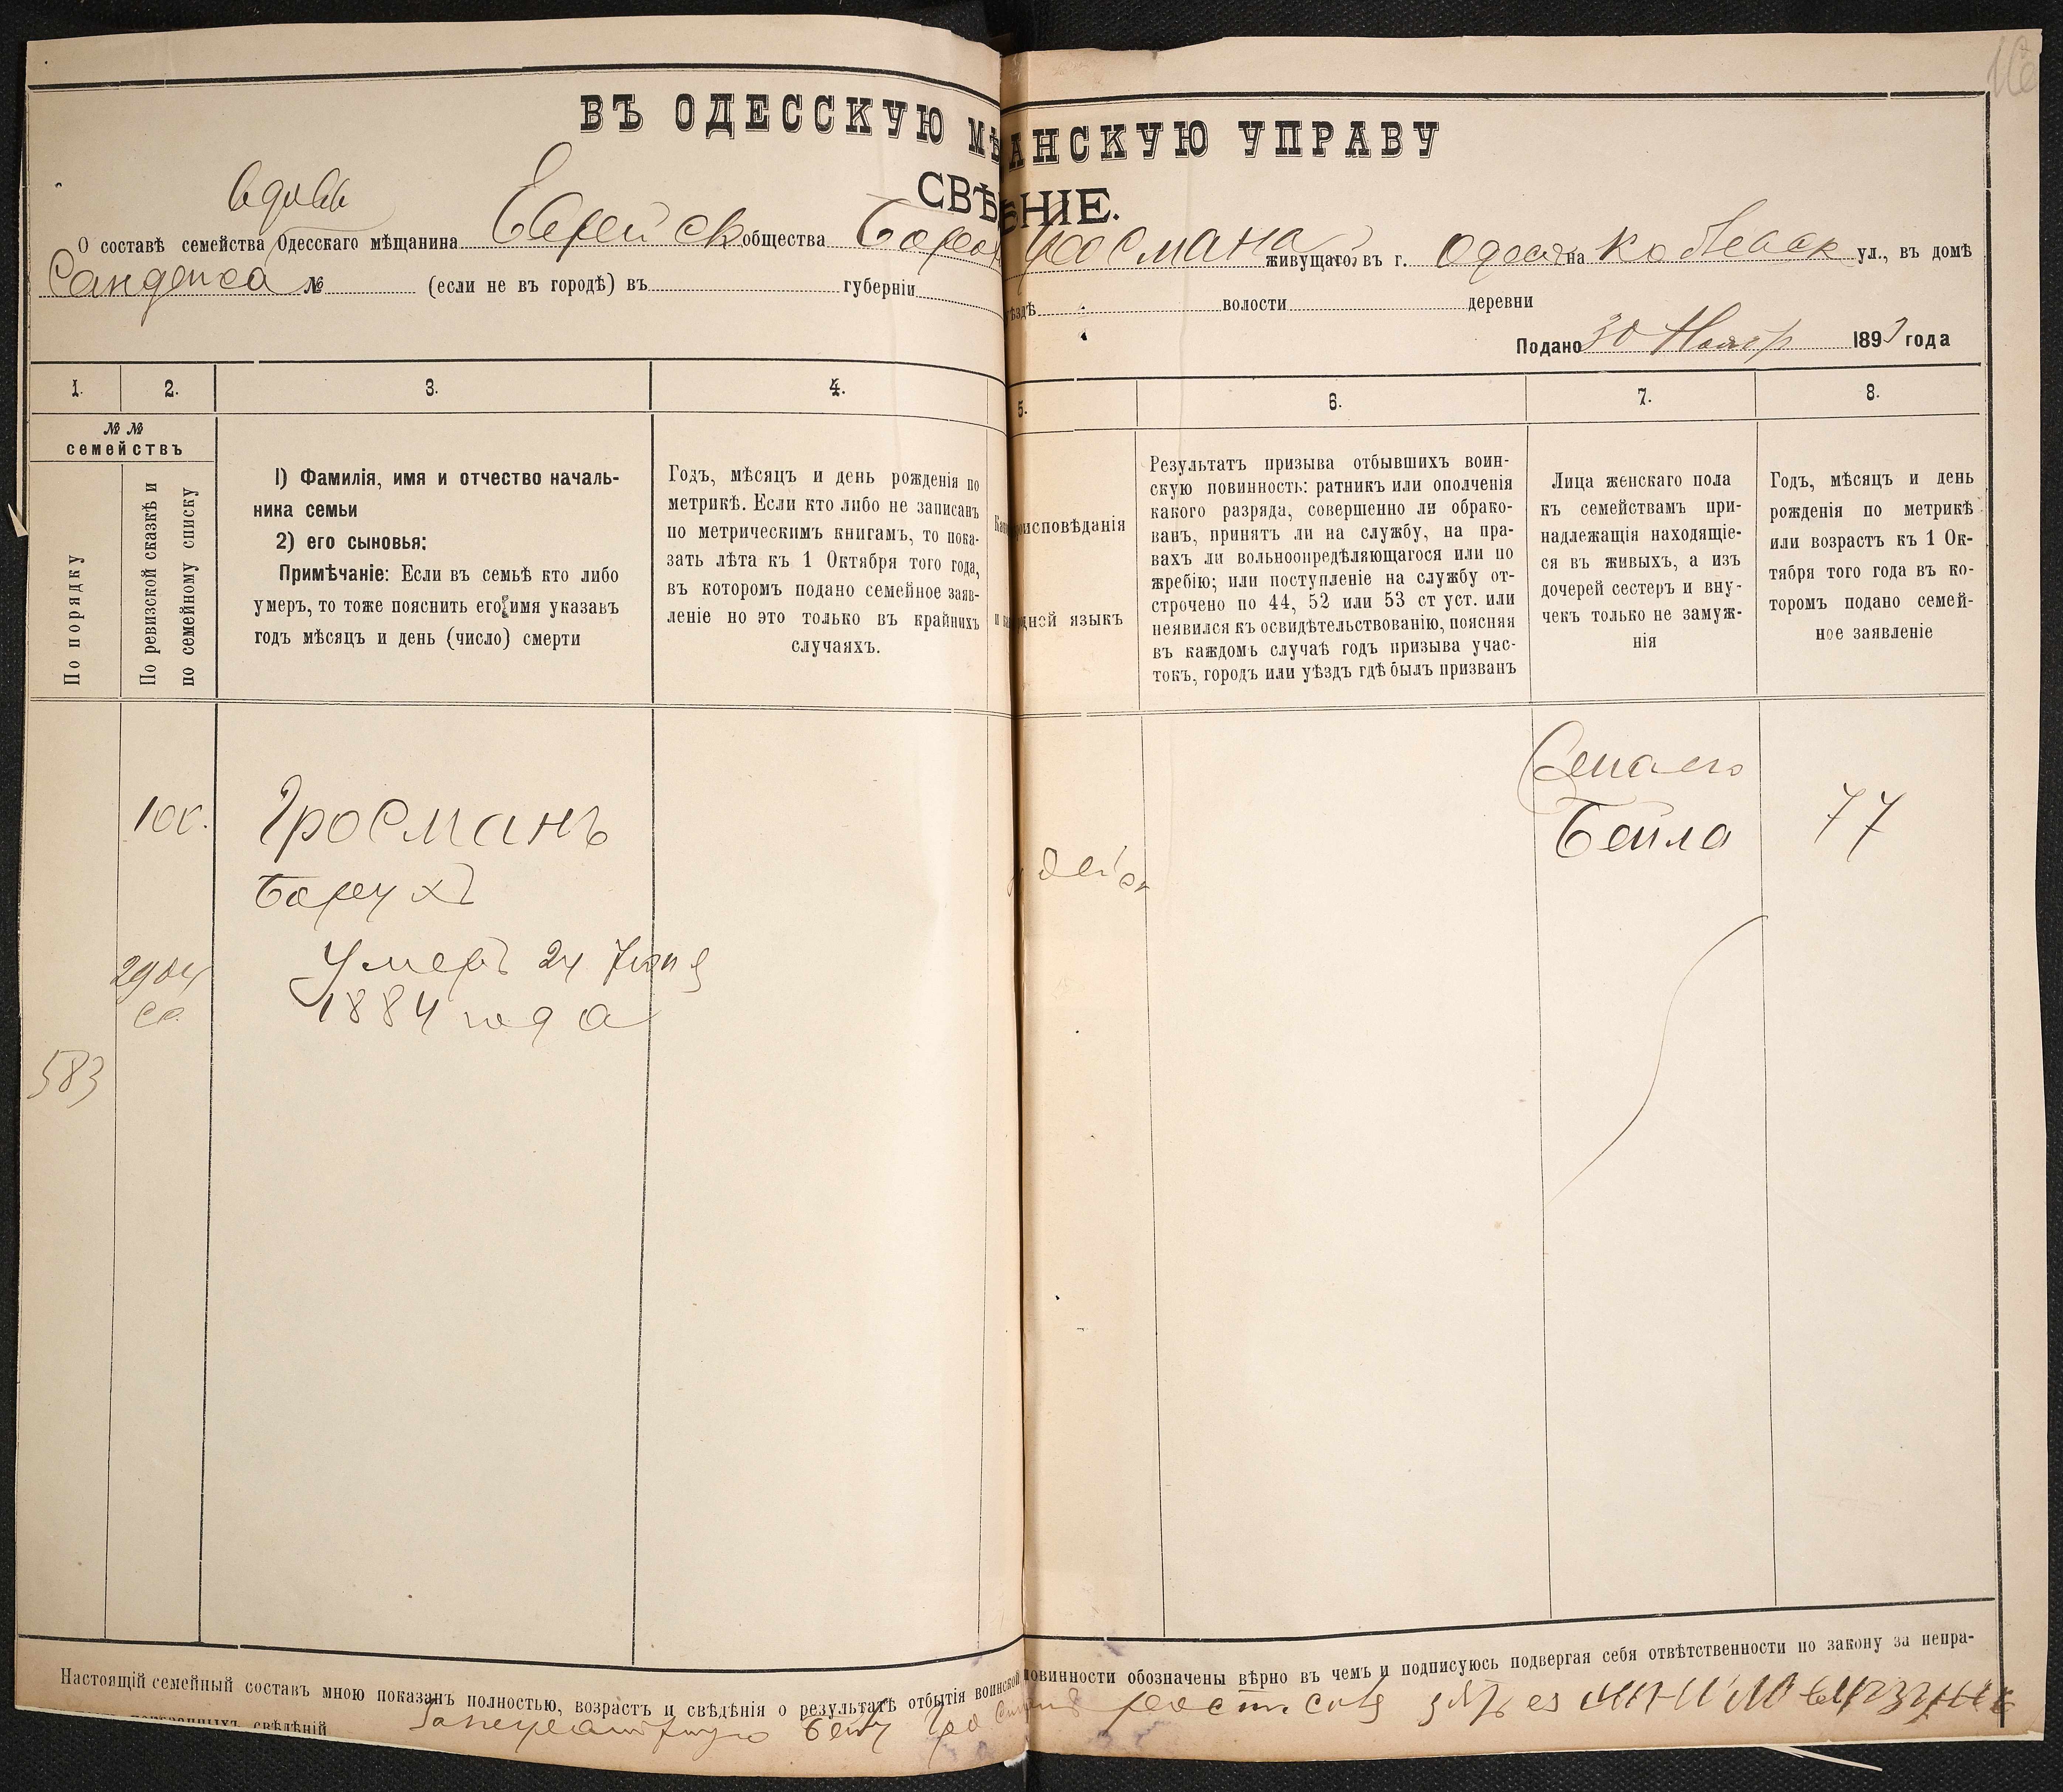 ВЪ ОДЕССКУЮ МѢ АНСКУЮ УПРАВУ
СВѢ ѢНІЕ.
вдовы
О составѣ семейства Одесскаго мѣщанина Еврейск общества Борох Гросмана живущаго въ г. Одессѣ на Коблевск ул., въ домѣ
№ (если не въ городѣ) въ губерніи ѣздѣ волости деревни
Подано 30 Ноябр 1893 года
1. 2. 3. 4. 5. 6. 7. 8.
№ №
семействъ
По порядку
По ревизской сказкѣ и
по семейному списку
1) Фамилія, имя и отчество началь-
ника семьи
2) его сыновья:
Примѣчаніе: Если въ семьѣ кто либо
умеръ, то тоже пояснить его имя указавъ
годъ мѣсяцъ и день (число) смерти
Годъ, мѣсяцъ и день рожденія по
метрикѣ. Если кто либо не записанъ
по метрическимъ книгамъ, то пока-
зать лѣта къ 1 Октября того года,
въ которомъ подано семейное заяв-
леніе но это только въ крайнихъ
случаяхъ.
роисповѣданія
дной языкъ
Результатъ призыва отбывшихъ воин-
скую повинность: ратникъ или ополченія
какого разряда, совершенно ли обрако-
ванъ, принятъ ли на службу, на пра-
вахъ ли вольноопредѣляющагося или по
жребію; или поступленіе на службу от-
строчено по 44, 52 или 53 ст уст. или
неявился къ освидѣтельствованію, поясняя
въ каждомъ случаѣ годъ призыва учас-
токъ, городъ или уѣздъ гдѣ былъ призванъ
Лица женскаго пола
къ семействамъ при-
надлежащія находящіе-
ся въ живыхъ, а изъ
дочерей сестеръ и вну-
чекъ только не замуж-
нія
Годъ, мѣсяцъ и день
рожденія по метрикѣ
или возрастъ къ 1 Ок-
тября того года въ ко-
торомъ подано семей-
ное заявленіе
Гросманъ
Борухъ
Умеръ 24 Іюня
1884 года
2904
583
Жена его
Бейла
77
Настоящій семейный составъ мною показанъ полностью, возрастъ и свѣдѣнія о результатѣ отбытія воинской повинности обозначены вѣрно въ чемъ и подписуюсь подвергая себя отвѣтственности по закону за непра-
свѣдѣній